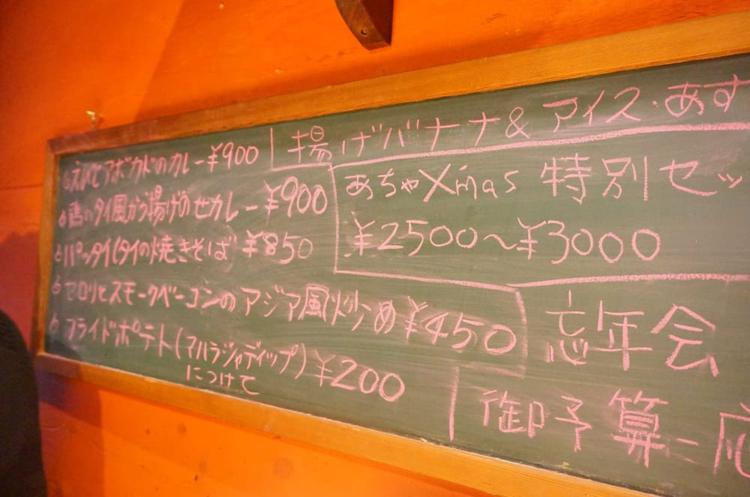 えびとアボカドのカレー ¥900
鶏のタイ風から揚げのせカレー ¥900
パッタイ(タイの焼きそば ¥850
セロリとスモークベーコンのアジア風炒め ¥450
フライドポテト(マハラジャディップ) ¥200
につけて
揚げバナナ&アイス・あす
あちゃXmas 特別セッ
¥2500~¥3000
忘年会
御予算に応